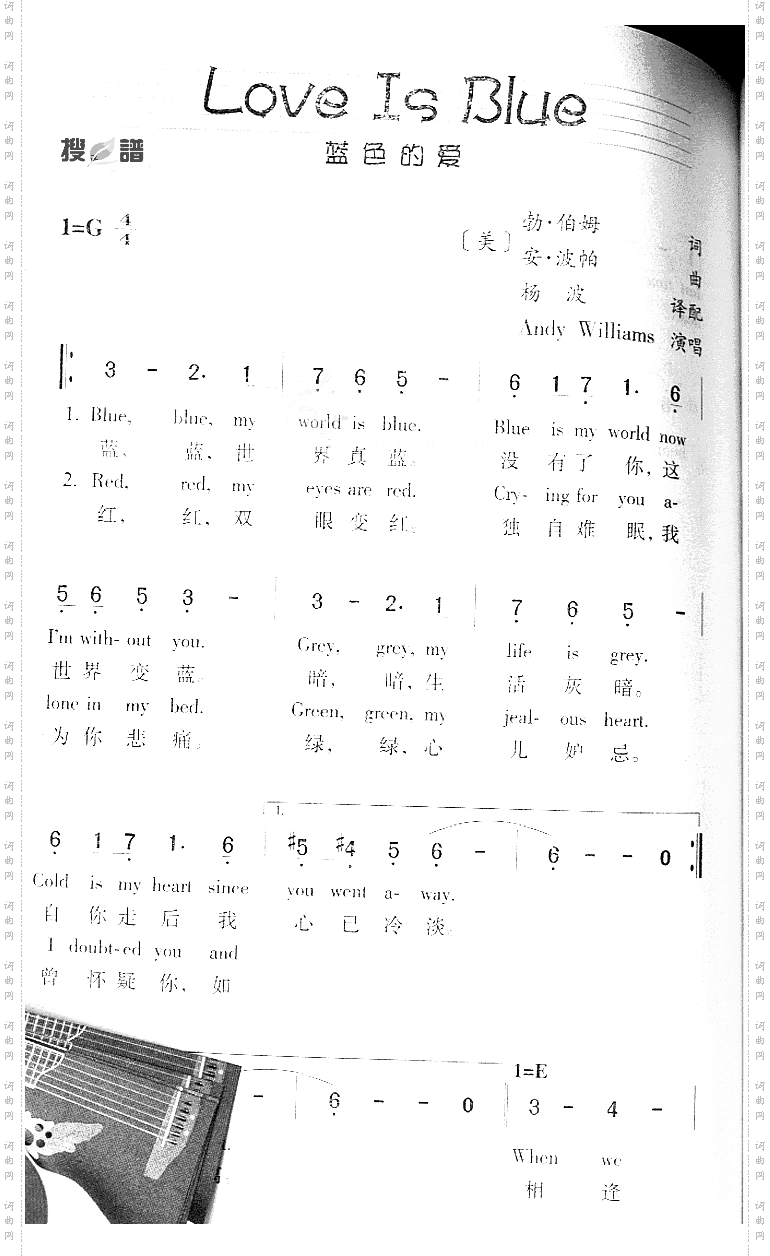 Love Is Blue
搜 譜
蓝色的爱
1=G 4/4
〔美〕
勃·伯姆 词
安·波帕 曲
杨 波 译配
Andy Williams 演唱
3 - 2. 1 | 7 6 5 - | 6 1 7 1. 6 |
1. Blue, blue, my world is blue. Blue is my world now
蓝, 蓝, 世 界 真 蓝。 没 有 了 你, 这
2. Red, red, my eyes are red. Cry- ing for you a-
红, 红, 双 眼 变 红。 独 自 难 眠, 我
5 6 5 3 - | 3 - 2. 1 | 7 6 5 - |
I'm with- out you. Grey, grey, my life is grey.
世 界 变 蓝。 暗, 暗, 生 活 灰 暗。
lone in my bed. Green, green, my jeal- ous heart.
为 你 悲 痛。 绿, 绿, 心 儿 妒 忌。
1.
6 1 7 1. 6 | #5 #4 5 6 - | 6 - - 0
Cold is my heart since you went a- way.
自 你 走 后 我 心 已 冷 淡。
I doubt-ed you and
曾 怀 疑 你, 如
1=E
- | 6 - - 0 | 3 - 4 - |
When we
相 逢
词曲网